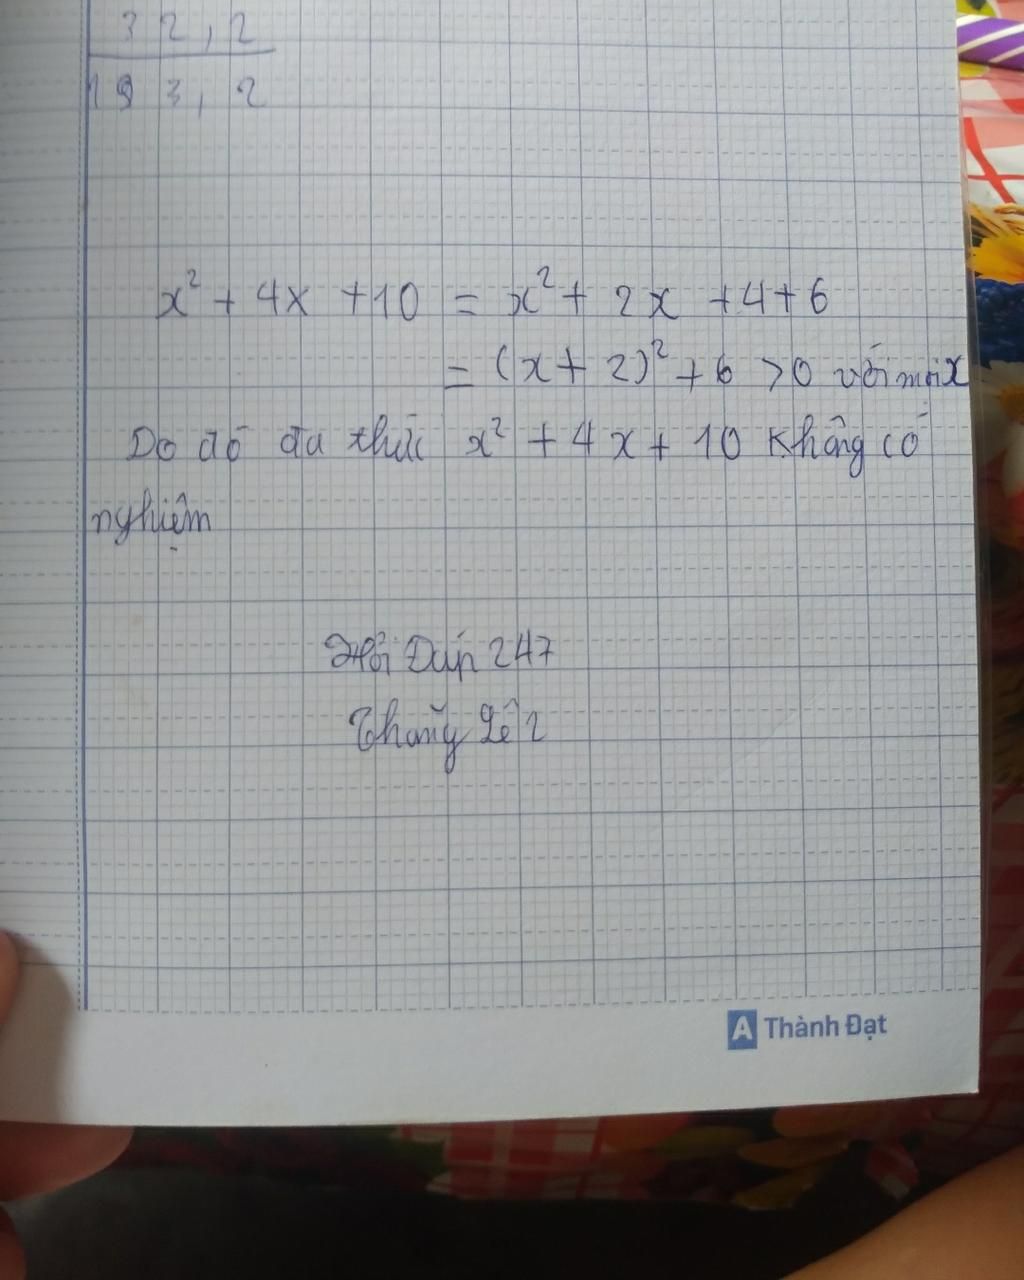 32,2
193,2
x² + 4x + 10 = x² + 2x + 4 + 6
= (x + 2)² + 6 > 0 với mọi x
Do đó đa thức x² + 4x + 10 không có
nghiệm
Hỏi Đáp 247
Thắng Lê 2
A Thành Đạt